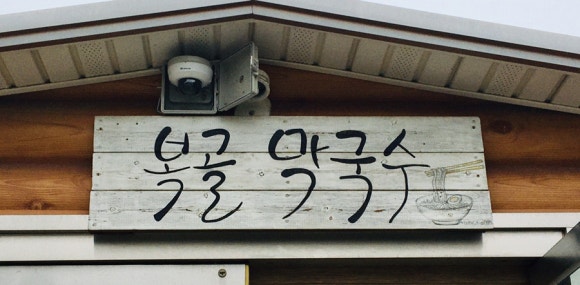 복골 막국수